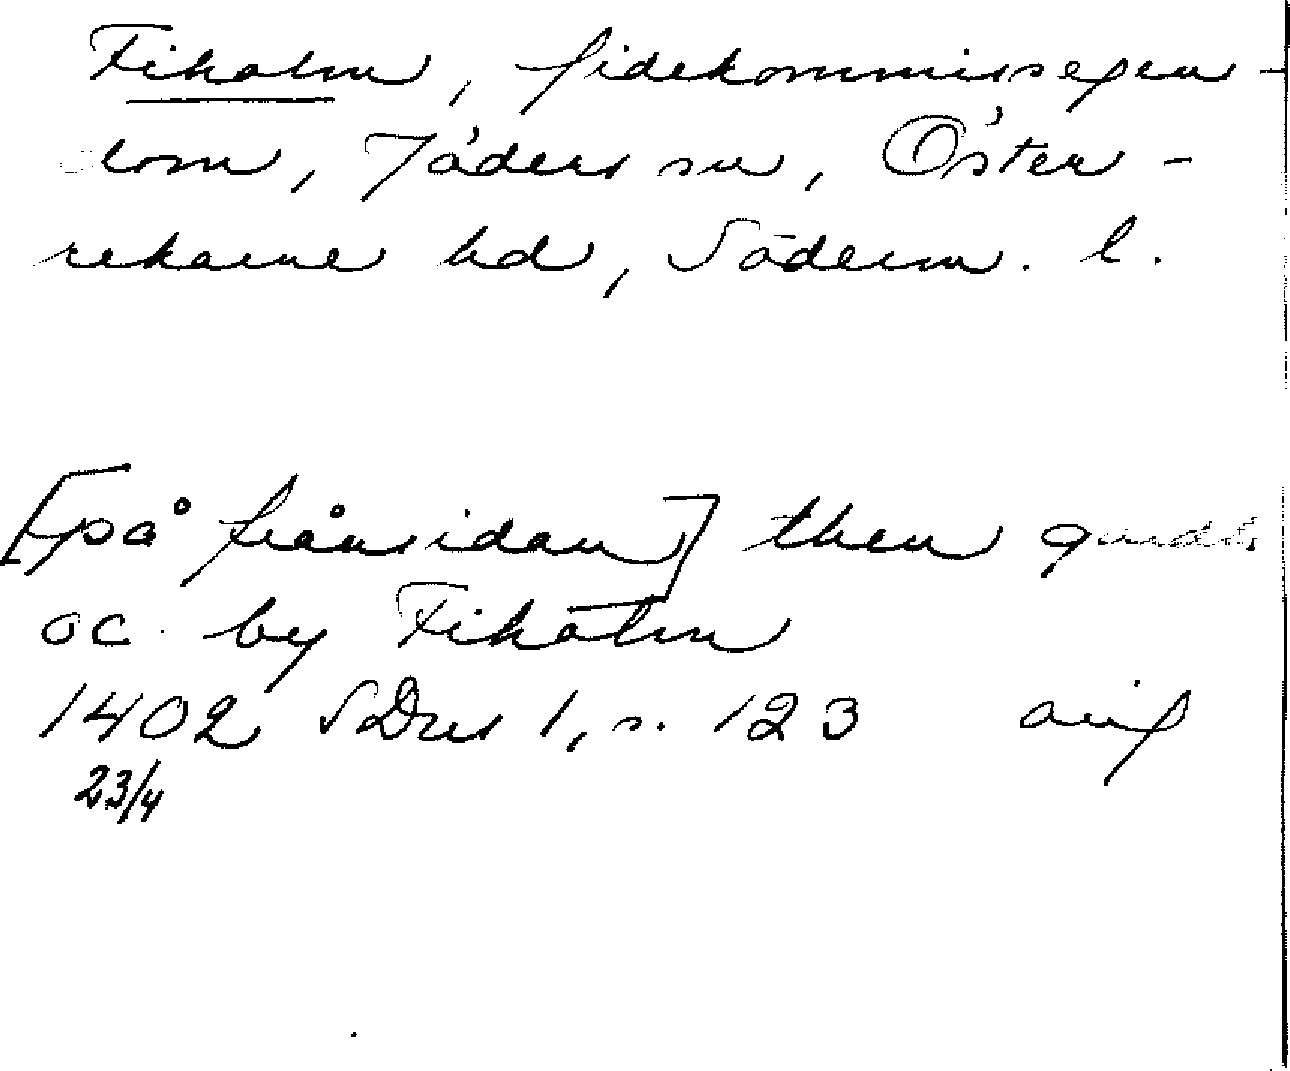 Fiholm, fidekommissegen-
dom, Jäders sn, Öster-
rekarne hd, Söderm. l.
[på frånsidan] then gardh
oc by Fiholm
1402 SDns 1, s. 123 avs
23/4